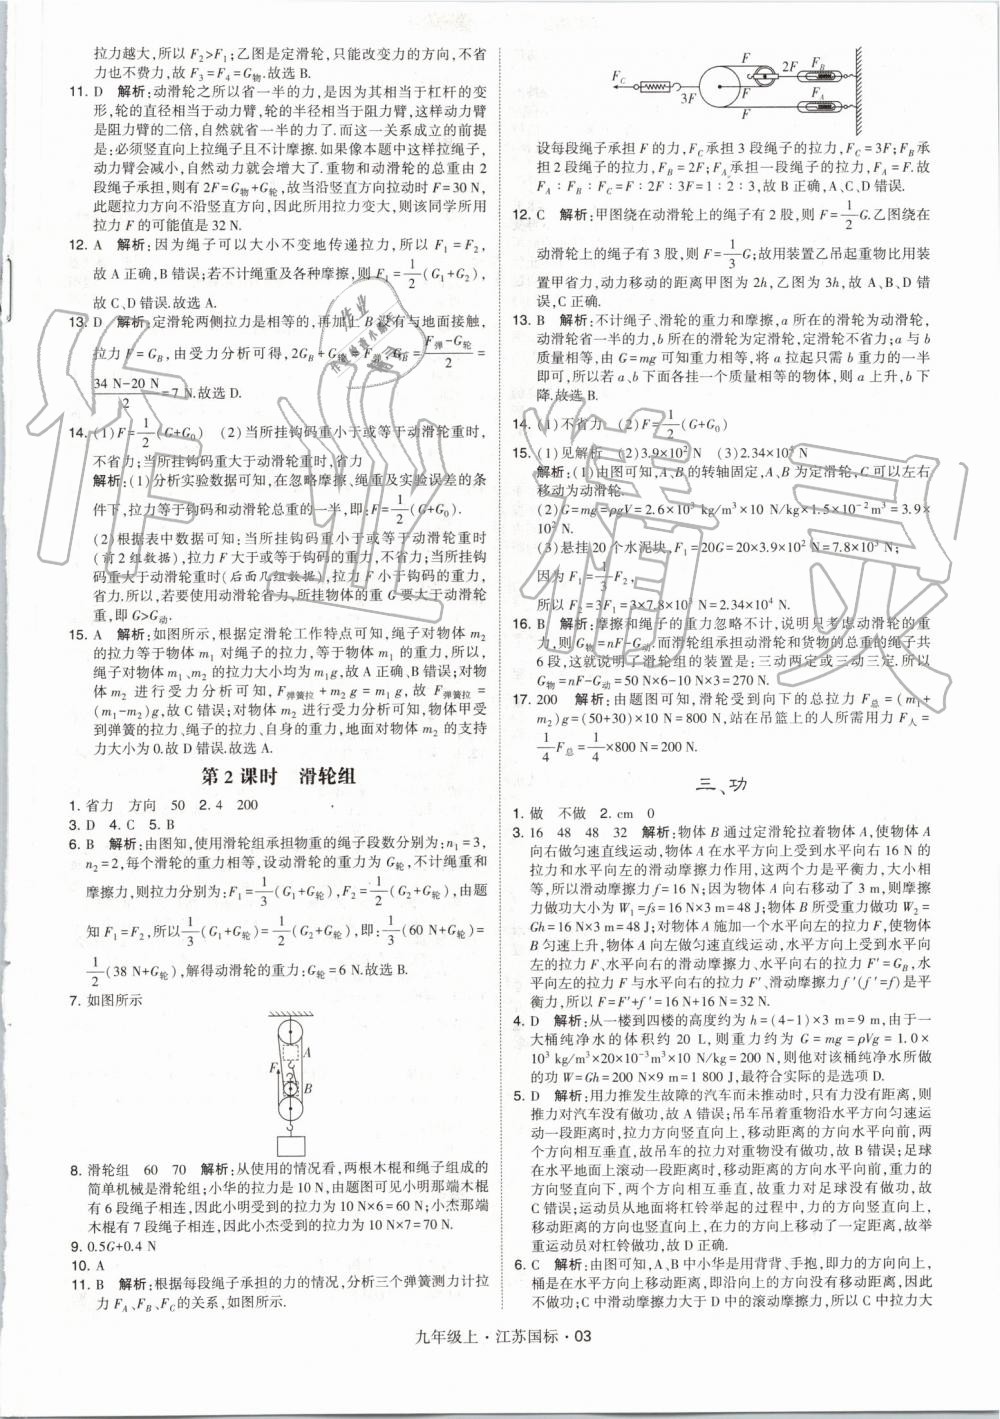 拉力越大,所以 F₂>F₁;乙图是定滑轮,只能改变力的方向,不省
力也不费力,故 F₃=F₄=G物.故选 B.
11. D 解析:动滑轮之所以省一半的力,是因为其相当于杠杆的变
形,轮的直径相当于动力臂,轮的半径相当于阻力臂,这样动力臂
是阻力臂的二倍,自然就省一半的力了.而这一关系成立的前提
是:必须竖直向上拉绳子且不计摩擦.如果像本题中这样拉绳子,
动力臂会减小,自然动力就会增大了.重物和动滑轮的总重由 2
段绳子承担,则有 2F=G物+G轮,故当沿竖直方向拉动时 F=30 N,
此题拉力方向不沿竖直方向,因此所用拉力变大,则该同学所用
拉力 F 的可能值是 32 N.
12. A 解析:因为绳子可以大小不变地传递拉力,所以 F₁=F₂,
故 A 正确,B 错误;若不计绳重及各种摩擦,则 F₁=1/2(G₁+G₂),
故 C、D 错误.故选 A.
13. D 解析:定滑轮两侧拉力是相等的,再加上 B 没有与地面接触,
拉力 F=G_B,由受力分析可得,2G_B+G轮=F弹,G_B=(F弹-G轮)/2=
(34 N-20 N)/2=7 N.故选 D.
14. (1)F=1/2(G+G₀) (2)当所挂钩码重小于或等于动滑轮重时,
不省力;当所挂钩码重大于动滑轮重时,省力
解析:(1)分析实验数据可知,在忽略摩擦、绳重及实验误差的条
件下,拉力等于钩码和动滑轮总重的一半,即:F=1/2(G+G₀).
(2)根据表中数据可知:当所挂钩码重小于或等于动滑轮重时
(前2组数据),拉力 F 大于或等于钩码的重力,不省力;当所挂钩
码重大于动滑轮重时(后面几组数据),拉力 F 小于钩码的重力,
省力.所以,若要使用动滑轮省力,所挂物体的重 G 要大于动滑轮
重,即 G>G动.
15. A 解析:如图所示,根据定滑轮工作特点可知,绳子对物体 m₂
的拉力等于物体 m₁ 对绳子的拉力,等于物体 m₁ 的重力,所以,
绳子对物体 m₁、m₂ 的拉力大小均为 m₁g,故 A 正确、B 错误;对物
体 m₂ 进行受力分析可知,F弹簧拉+m₂g=m₁g,故 F弹簧拉=
(m₁-m₂)g,故 C 错误;对物体 m₂ 进行受力分析可知,物体甲受
到弹簧的拉力、绳子的拉力、自身的重力,地面对物体 m₂ 的支持
力大小为 0.故 D 错误.故选 A.
第 2 课时 滑轮组
1. 省力 方向 50 2. 4 200
3. D 4. C 5. B
6. B 解析:由图知,使用滑轮组承担物重的绳子段数分别为:n₁=3,
n₂=2,每个滑轮的重力相等,设动滑轮的重力为 G轮,不计绳重和
摩擦力,则拉力分别为:F₁=1/3(G₁+G轮),F₂=1/2(G₂+G轮),由题
知 F₁=F₂,所以1/3(G₁+G轮)=1/2(G₂+G轮),即:1/3(60 N+G轮)=
1/2(38 N+G轮),解得动滑轮的重力:G轮=6 N.故选 B.
7. 如图所示
A
F
B
8. 滑轮组 60 70 解析:从使用的情况看,两根木棍和绳子组成的
简单机械是滑轮组;小华的拉力是 10 N,由题图可见小明那端木棍
有 6 段绳子相连,因此小明受到的拉力为 10 N×6=60 N;小杰那端
木棍有 7 段绳子相连,因此小杰受到的拉力为 10 N×7=70 N.
9. 0.5G+0.4 N
10. A
11. B 解析:根据每段绳子承担的力的情况,分析三个弹簧测力计拉
力 F_A、F_B、F_C 的关系,如图所示.
F_C 3F F 2F F_B
F F_A
F
设每段绳子承担 F 的力,F_C 承担 3 段绳子的拉力,F_C=3F;F_B 承
担 2 段绳子的拉力,F_B=2F;F_A 承担一段绳子的拉力,F_A=F.故
F_A∶F_B∶F_C=F∶2F∶3F=1∶2∶3,故 B 正确,A、C、D 错误.
12. C 解析:甲图绕在动滑轮上的绳子有 2 股,则 F=1/2G.乙图绕在
动滑轮上的绳子有 3 股,F=1/3G;故用装置乙吊起重物比用装
置甲省力,动力移动的距离甲图为 2h,乙图为 3h,故 A、B、D 错
误,C 正确.
13. B 解析:不计绳子、滑轮的重力和摩擦,a 所在的滑轮为动滑轮,
动滑轮省一半的力,b 所在的滑轮为定滑轮,定滑轮不省力;a 与 b
质量相等,由 G=mg 可知重力相等,将 a 拉起只需 b 重力的一半
即可,所以若 a、b 下面各挂一个质量相等的物体,则 a 上升,b 下
降.故选 B.
14. (1)不省力 (2)F=1/2(G+G₀)
15. (1)见解析 (2)3.9×10² N (3)2.34×10⁴ N
解析:(1)由图可知,A、B 的转轴固定,A、B 为定滑轮,C 可以左右
移动为动滑轮.
(2)G=mg=ρgV=2.6×10³ kg/m³×10 N/kg×1.5×10⁻² m³=3.9×
10² N.
(3)悬挂 20 个水泥块,F₁=20G=20×3.9×10² N=7.8×10³ N;
因为 F₁=1/3F₂,
所以 F₂=3F₁=3×7.8×10³ N=2.34×10⁴ N.
16. B 解析:摩擦和绳子的重力忽略不计,说明只考虑动滑轮的重
力,则 G物=nF-G动.而滑轮组承担动滑轮和货物的总重的绳子共
6 段,这就说明了滑轮组的装置是:三动两定或三动三定.所以
G物=nF-G动=6×50 N-6×10 N×3=270 N.
17. 200 解析:由题图可知,滑轮受到向下的总拉力 F总=(m₁+
m₂)g=(50+30)×10 N=800 N,站在吊篮上的人所需用力 F人=
1/4F总=1/4×800 N=200 N.
三、功
1. 做 不做 2. cm 0
3. 16 48 48 32 解析:物体 B 通过定滑轮拉着物体 A,使物体 A
向右做匀速直线运动,物体 A 在水平方向上受到水平向右 16 N 的
拉力和水平向左的滑动摩擦力作用,这两个力是平衡力,大小相
等,所以滑动摩擦力 f=16 N;因为物体 A 向右移动了 3 m,则摩擦
力做功大小为 W₁=fs=16 N×3 m=48 J;物体 B 所受重力做功 W₂=
Gh=16 N×3 m=48 J.对物体 A 施加一个水平向左的拉力 F,使物体
B 匀速上升,物体 A 向左做匀速直线运动,水平方向上受到水平向
左的拉力 F、水平向右的滑动摩擦力、水平向右的拉力 F′=G_B,水平
向左的拉力 F 与水平向右的拉力 F′、滑动摩擦力 f′(f′=f)是平
衡力,所以 F=F′+f′=16 N+16 N=32 N.
4. D 解析:从一楼到四楼的高度约为 h=(4-1)×3 m=9 m,由于一
大桶纯净水的体积约 20 L,则重力约为 G=mg=ρVg=1.0×
10³ kg/m³×20×10⁻³m³×10 N/kg=200 N,则他对该桶纯净水所做
的功 W=Gh=200 N×9 m=1 800 J,最符合实际的是选项 D.
5. D 解析:用力推发生故障的汽车而未推动时,只有力没有距离,则
推力对汽车没有做功,故 A 错误;吊车吊着重物沿水平方向匀速运
动一段距离时,拉力方向竖直向上,移动距离的方向水平向前,两
个方向相互垂直,故吊车的拉力对重物没有做功,故 B 错误;足球
在水平地面上滚动一段距离时,移动距离的方向水平向前,重力方
向竖直向下,两个方向相互垂直,故重力对足球没有做功,故
C 错误;运动员从地面将杠铃举起的过程中,力的方向竖直向上,
移动距离的方向也竖直向上,在力的方向上移动了一定距离,故举
重运动员对杠铃做功,故 D 正确.
6. C 解析:由图可知,A、B 中小华是用背背、手抱,即力的方向向上,
桶是在水平方向上移动距离,即沿向上的方向没有移动距离,因此
不做功;C 中滑动摩擦力大于 D 中的滚动摩擦力,所以 C 中拉力大
九年级上·江苏国标·03
作业精灵